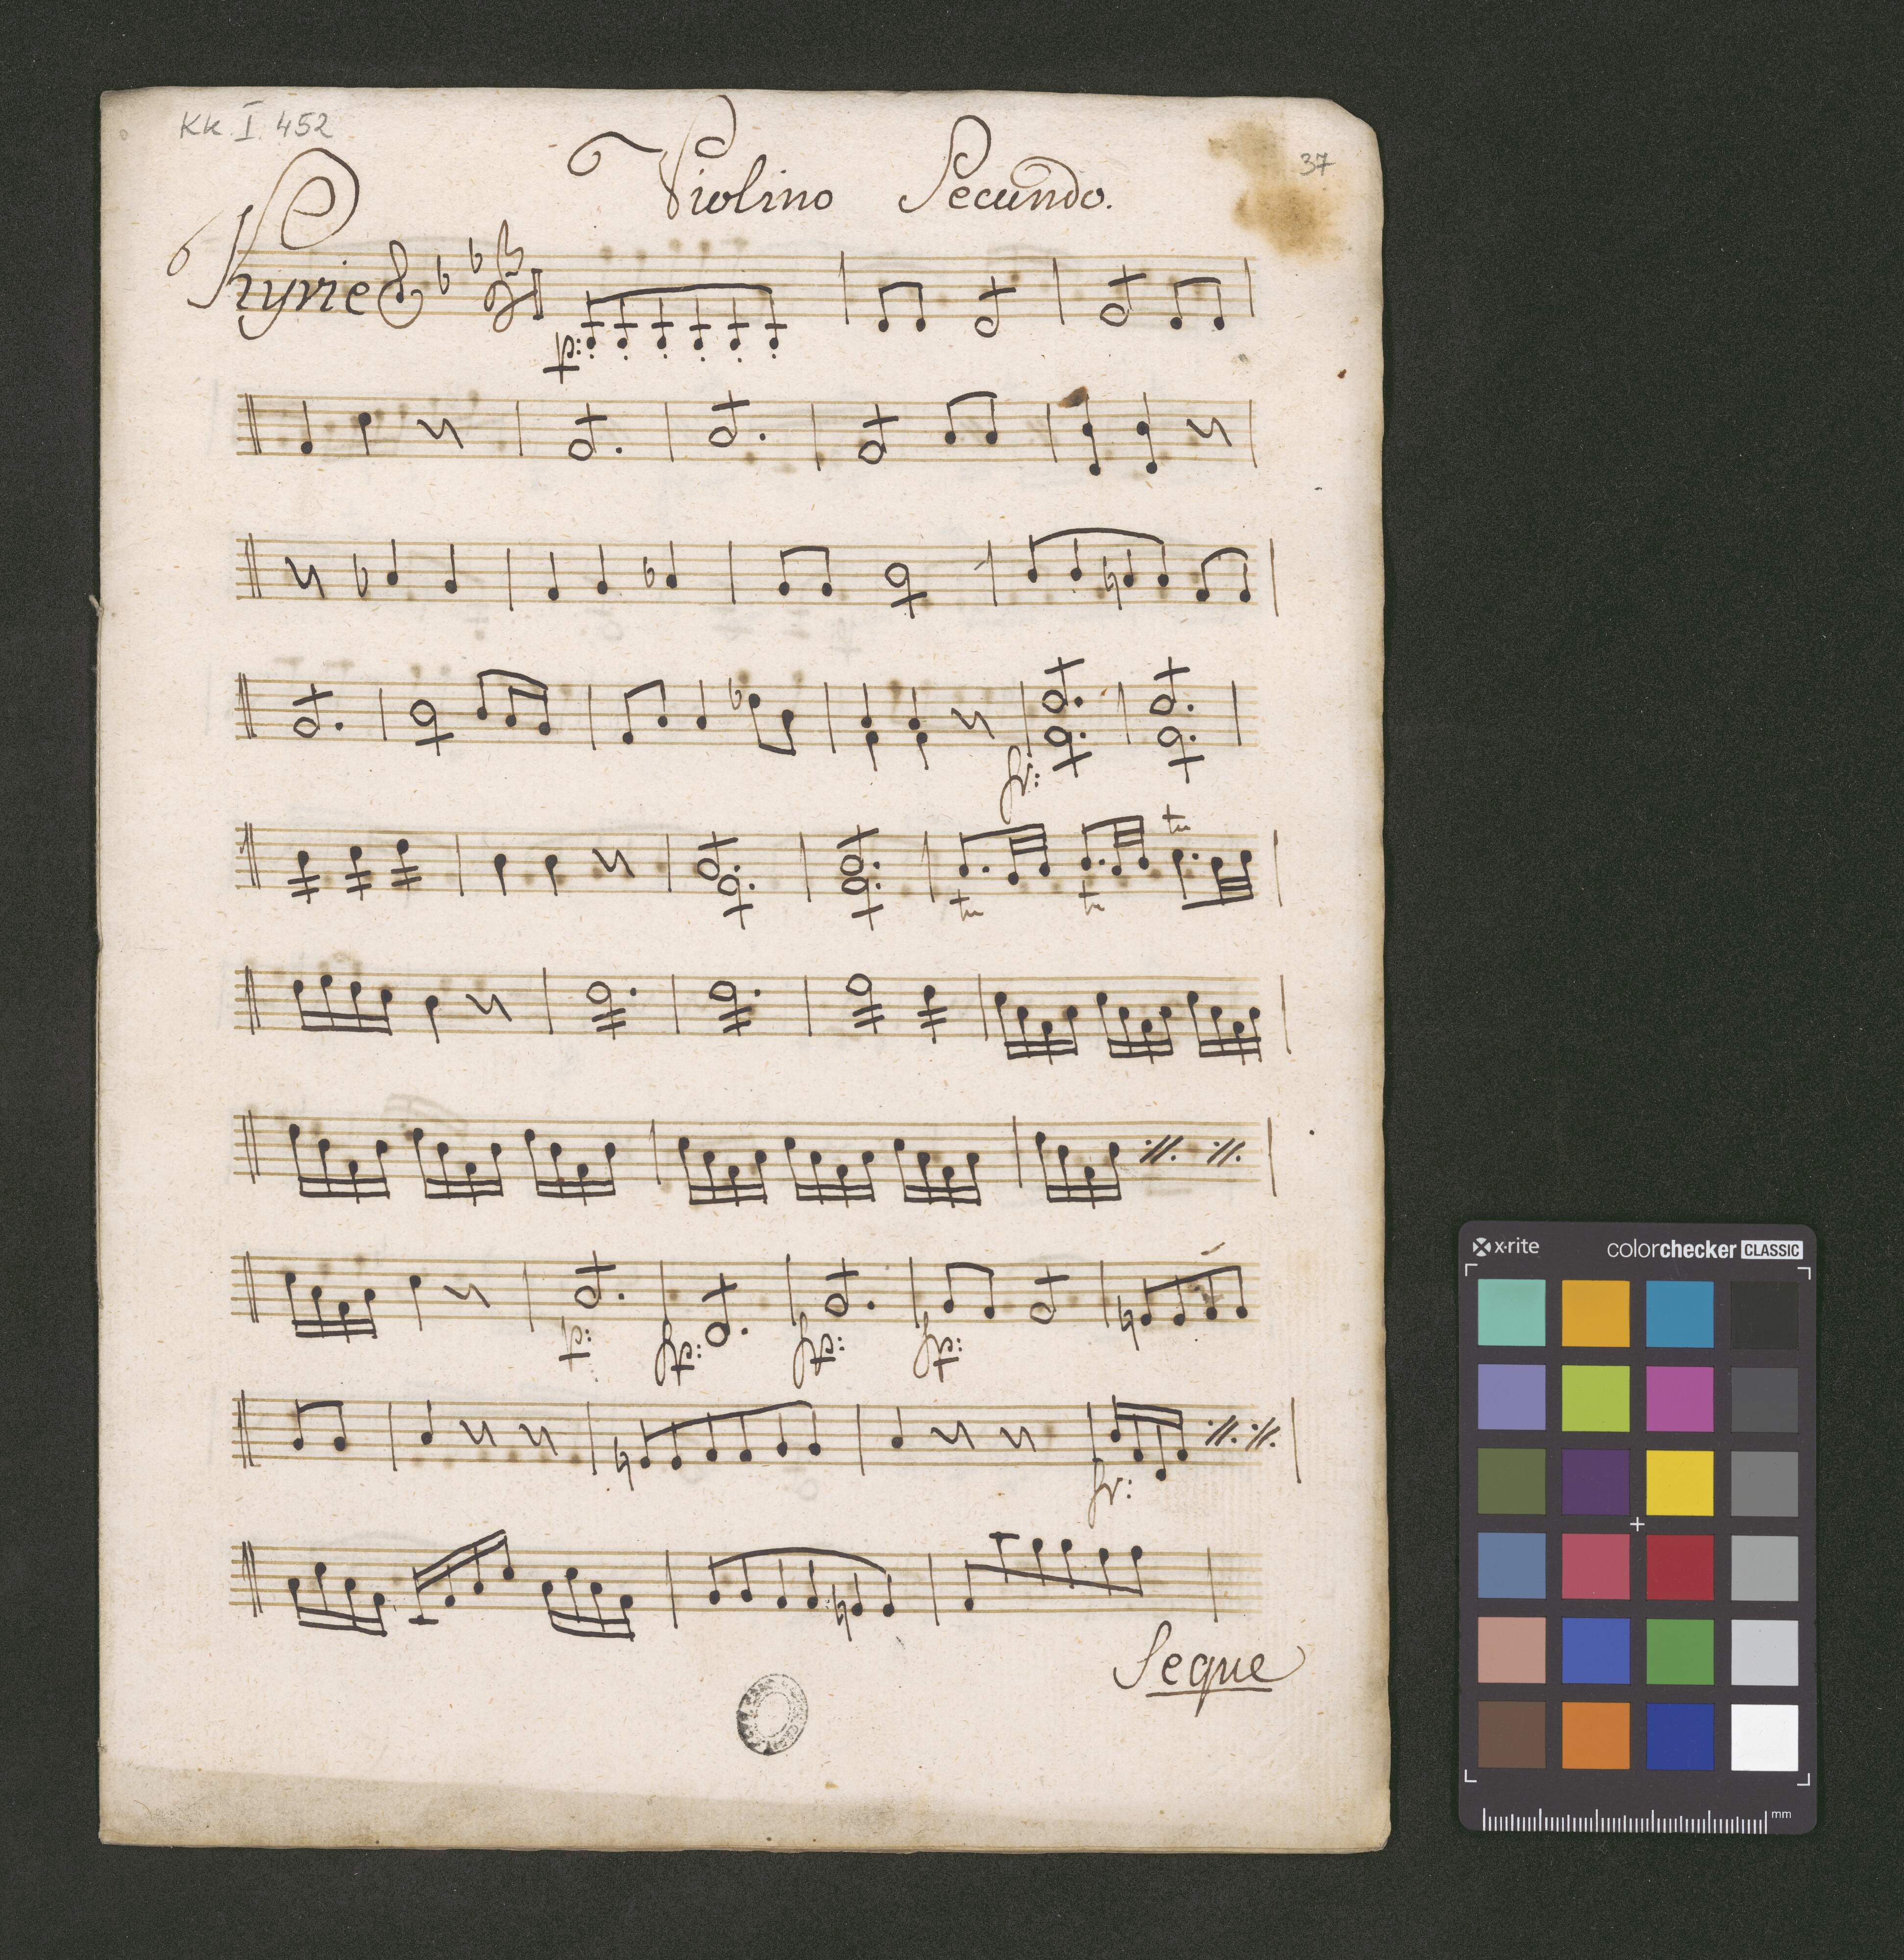 Kk I. 452
37
Violino Secundo.
Kyrie
p:
fr:
tr tr tr
p: fp: fp: fp:
fr:
Seque
x·rite colorchecker CLASSIC
mm